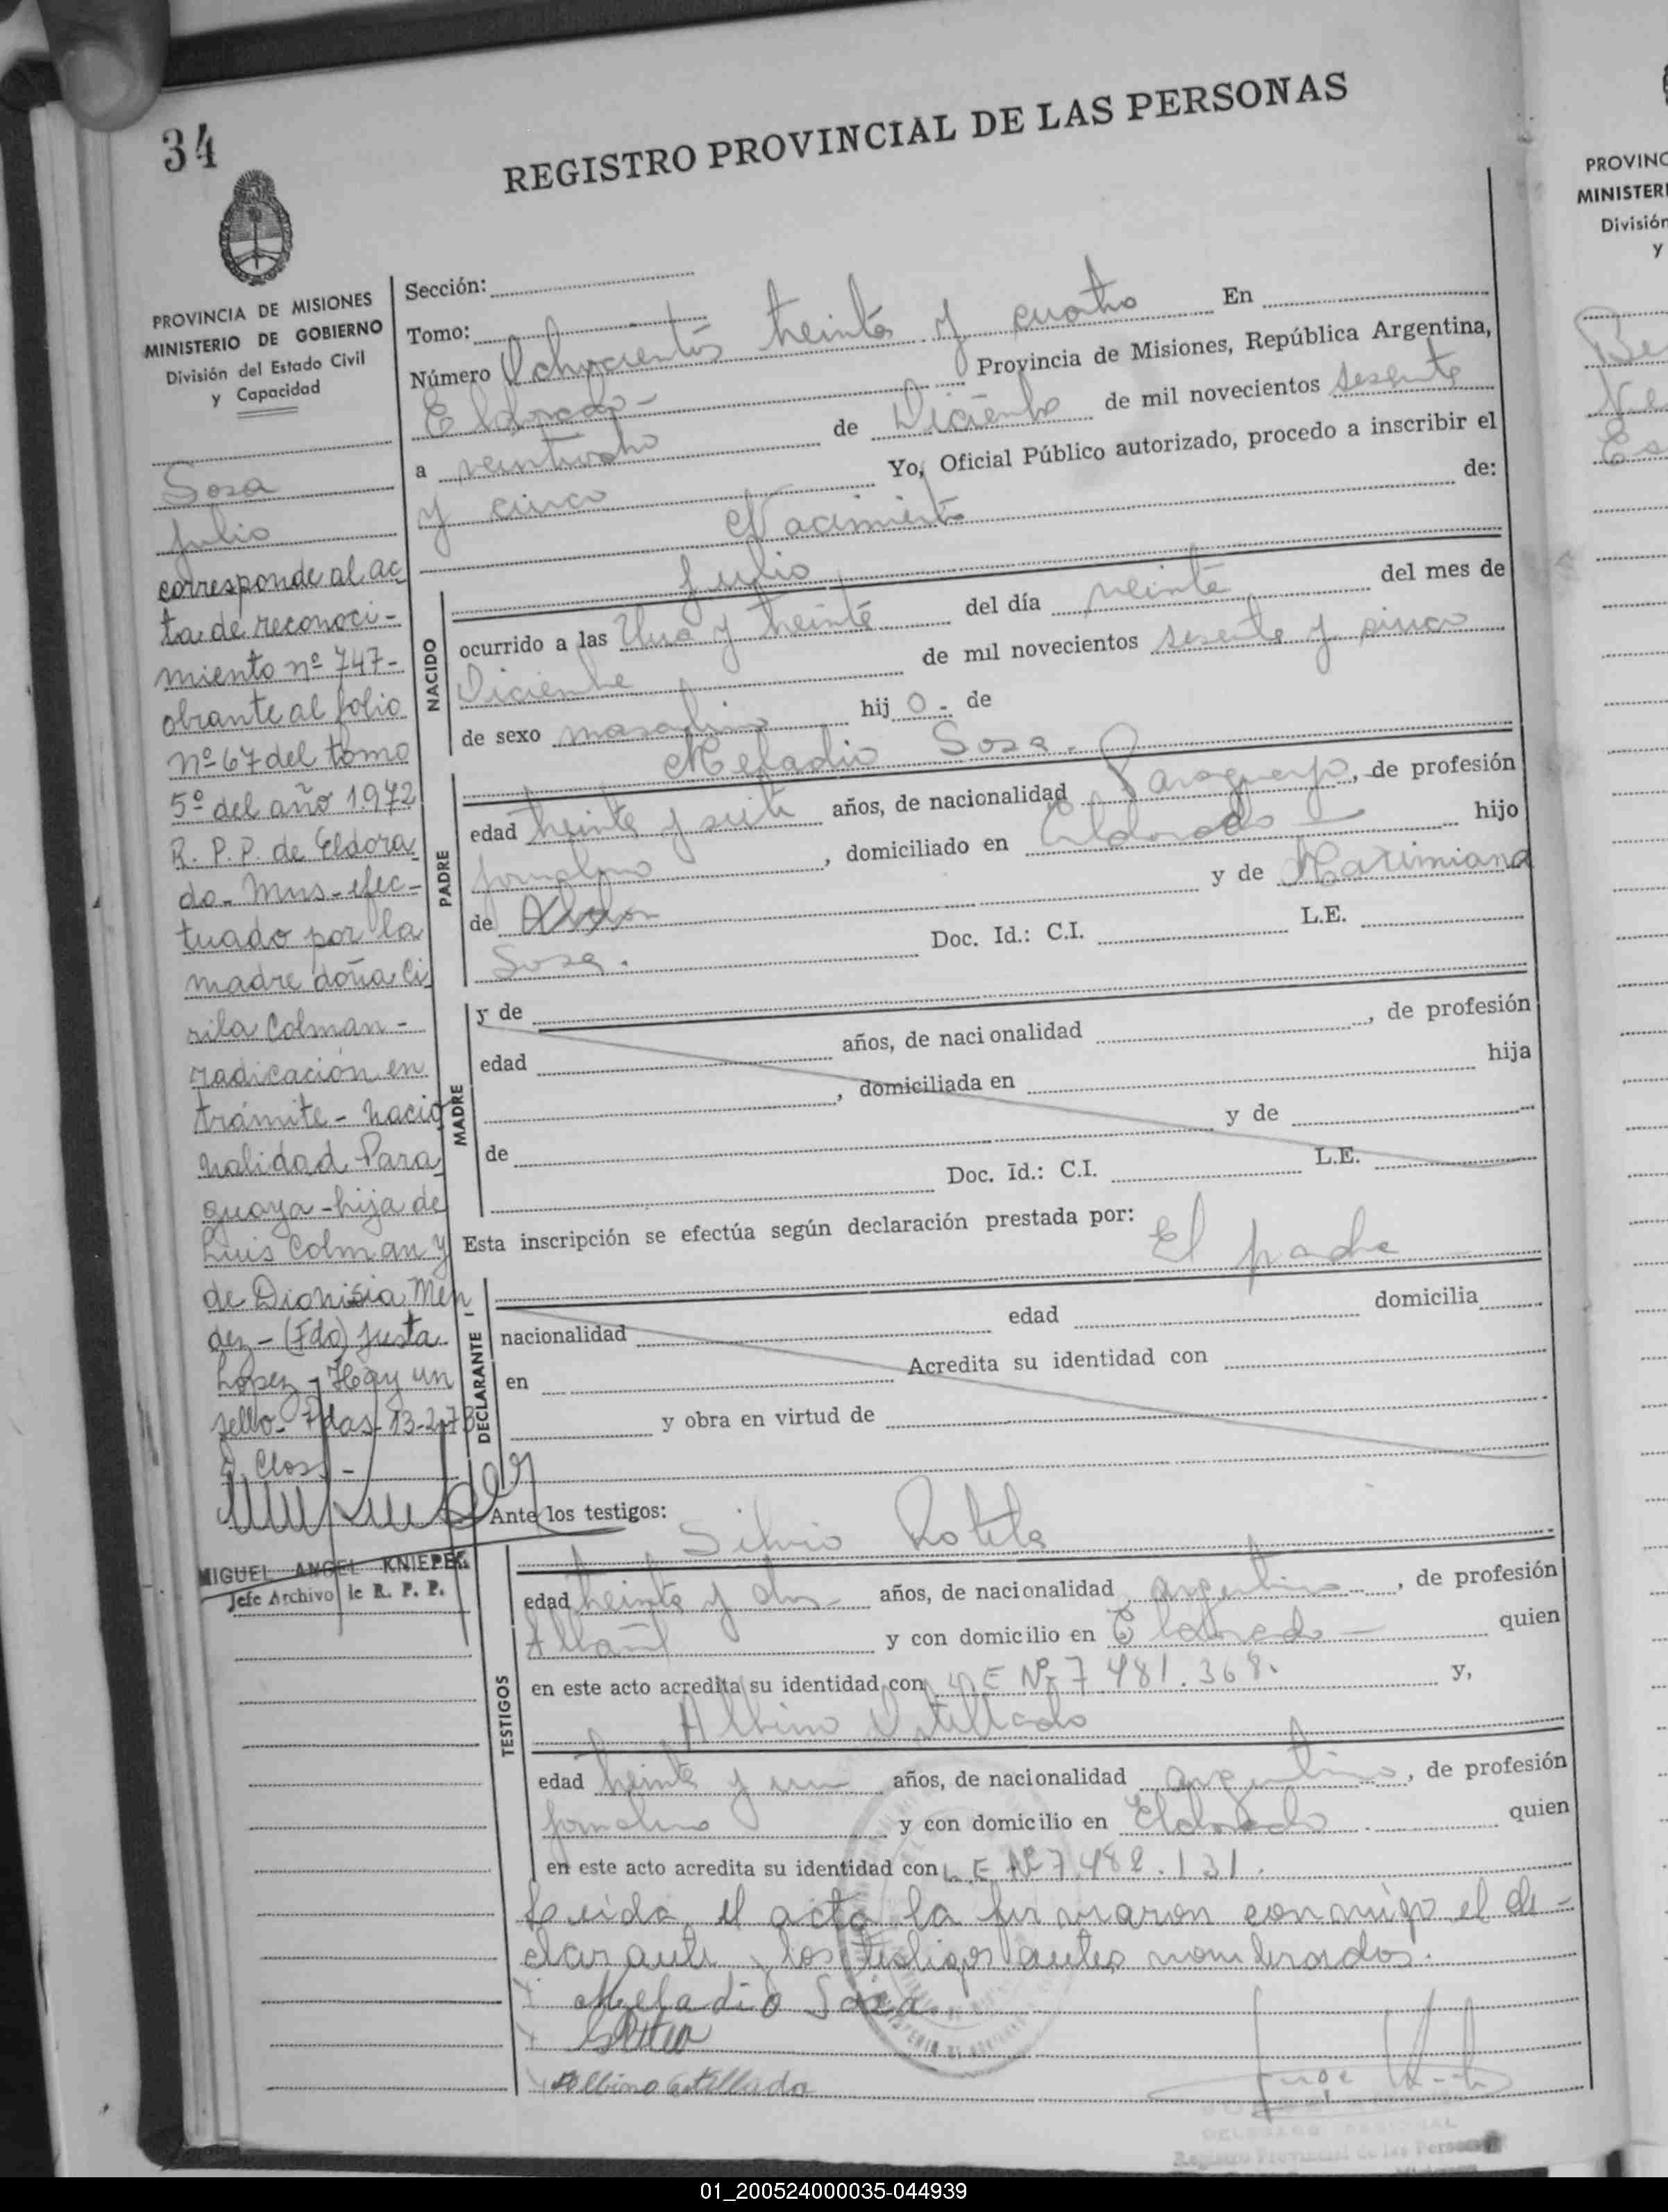 34
REGISTRO PROVINCIAL DE LAS PERSONAS
PROVINCIA DE MISIONES
MINISTERIO DE GOBIERNO
División del Estado Civil
y Capacidad
Sosa
Julio
corresponde al ac
ta de reconoci-
miento nº 747-
obrante al folio
nº 67 del tomo
5º del año 1972
R. P. P. de Eldora
do - Mns - efec-
tuado por la
madre doña Ci
rila Colman -
radicación en
trámite - nacio
nalidad Para
guaya - hija de
Luis Colman y
de Dionisia Men
dez - (Fdo) Justa
Lopez - Hay un
sello - Pdas - 13-2-73
Closs -
MIGUEL ANGEL KNIEPER
Jefe Archivo de R. P. P.
Sección:
Tomo:
Número Ochocientos treinta y cuatro En
Eldorado - Provincia de Misiones, República Argentina,
a veintiocho de Diciembre de mil novecientos sesenta
y cinco Yo, Oficial Público autorizado, procedo a inscribir el
Nacimiento de:
NACIDO
Julio
ocurrido a las Una y treinta del día veinte del mes de
Diciembre de mil novecientos sesenta y cinco
de sexo masculino hij o - de
PADRE
Meladio Sosa -
edad treinta y siete años, de nacionalidad Paraguayo, de profesión
jornalero, domiciliado en Eldorado - hijo
de y de Maximiana
Sosa. Doc. Id.: C.I. L.E.
MADRE
y de
edad años, de nacionalidad , de profesión
, domiciliada en hija
de y de
Doc. Id.: C.I. L.E.
Esta inscripción se efectúa según declaración prestada por: El padre
DECLARANTE
nacionalidad edad domicilia
en Acredita su identidad con
y obra en virtud de
Ante los testigos:
TESTIGOS
Silvio Rotela
edad treinta y dos - años, de nacionalidad argentino, de profesión
Albañil y con domicilio en Eldorado - quien
en este acto acredita su identidad con L E Nº 7.481.368. y,
Albino
edad treinta y un años, de nacionalidad argentino, de profesión
jornalero y con domicilio en Eldorado quien
en este acto acredita su identidad con L. E Nº 7.482.131.
Leída el acta la firmaron conmigo el de-
clarante y los testigos antes nombrados.
Meladio Sosa
Albino
Registro Provincial de las Personas
PROVINC
MINISTERI
División
y
01_200524000035-044939